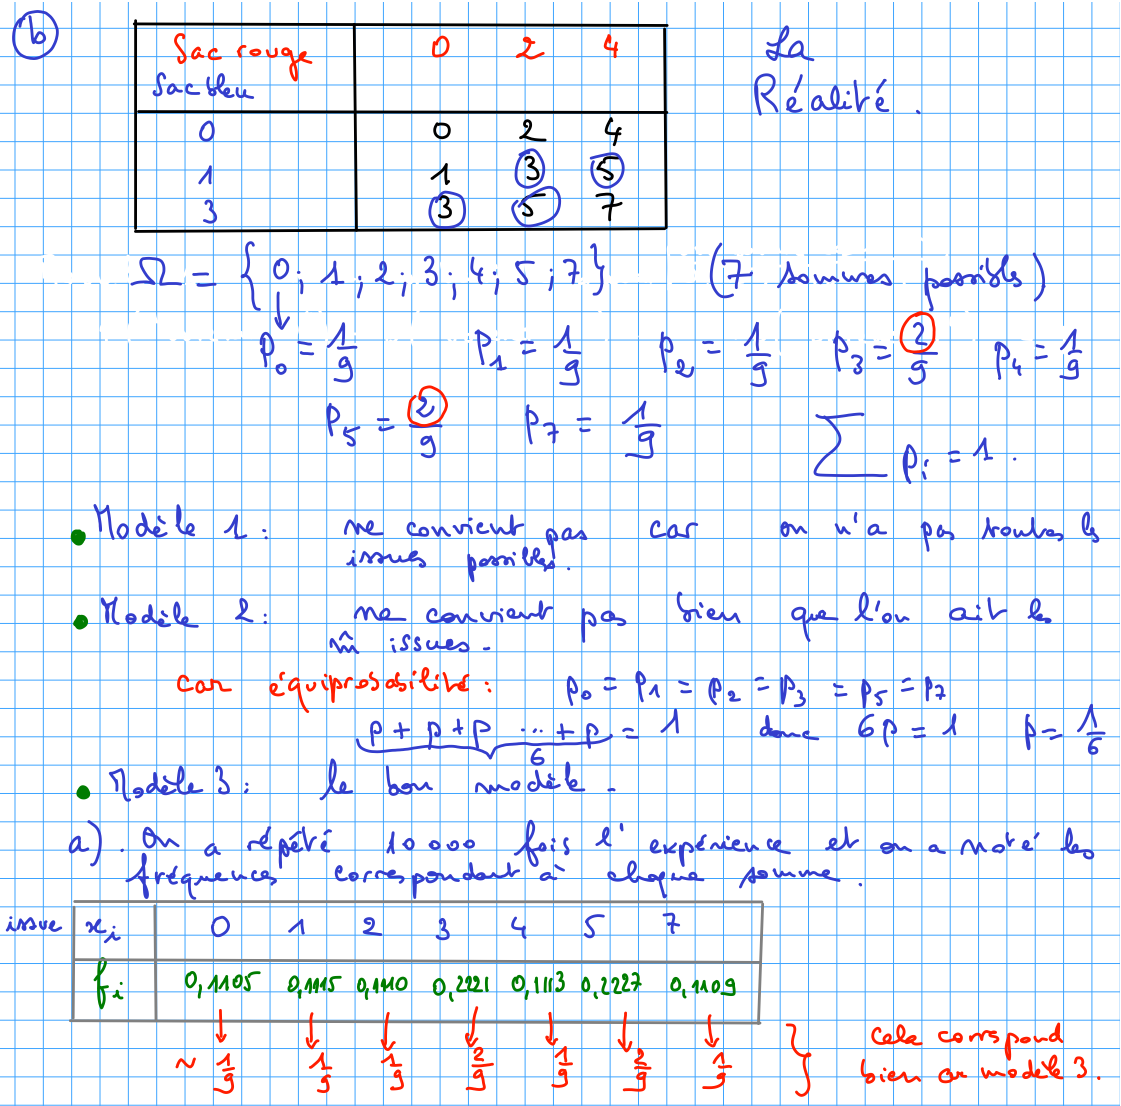 b
Sac rouge 0 2 4
Sac bleu
La
Réalité.
0 0 2 4
1 1 3 5
3 3 5 7
Ω = {0; 1; 2; 3; 4; 5; 7} (7 sommes possibles)
↓
p₀ = 1/9 p₁ = 1/9 p₂ = 1/9 p₃ = 2/9 p₄ = 1/9
p₅ = 2/9 p₇ = 1/9 ∑ pᵢ = 1.
• Modèle 1: ne convient pas car on n'a pas toutes les
issues possibles.
• Modèle 2: ne convient pas bien que l'on ait les
m̂ issues.
car équiprobabilité: p₀ = p₁ = p₂ = p₃ = p₅ = p₇
p + p + p ... + p = 1 donc 6p = 1 p = 1/6
6
• Modèle 3: le bon modèle.
a). On a répété 10000 fois l'expérience et on a noté les
fréquences correspondant à chaque somme.
issue xᵢ 0 1 2 3 4 5 7
fᵢ 0,1105 0,1115 0,1110 0,2221 0,1113 0,2227 0,1109
↓ ↓ ↓ ↓ ↓ ↓ ↓
~ 1/9 1/9 1/9 2/9 1/9 2/9 1/9 } Cela correspond
bien au modèle 3.